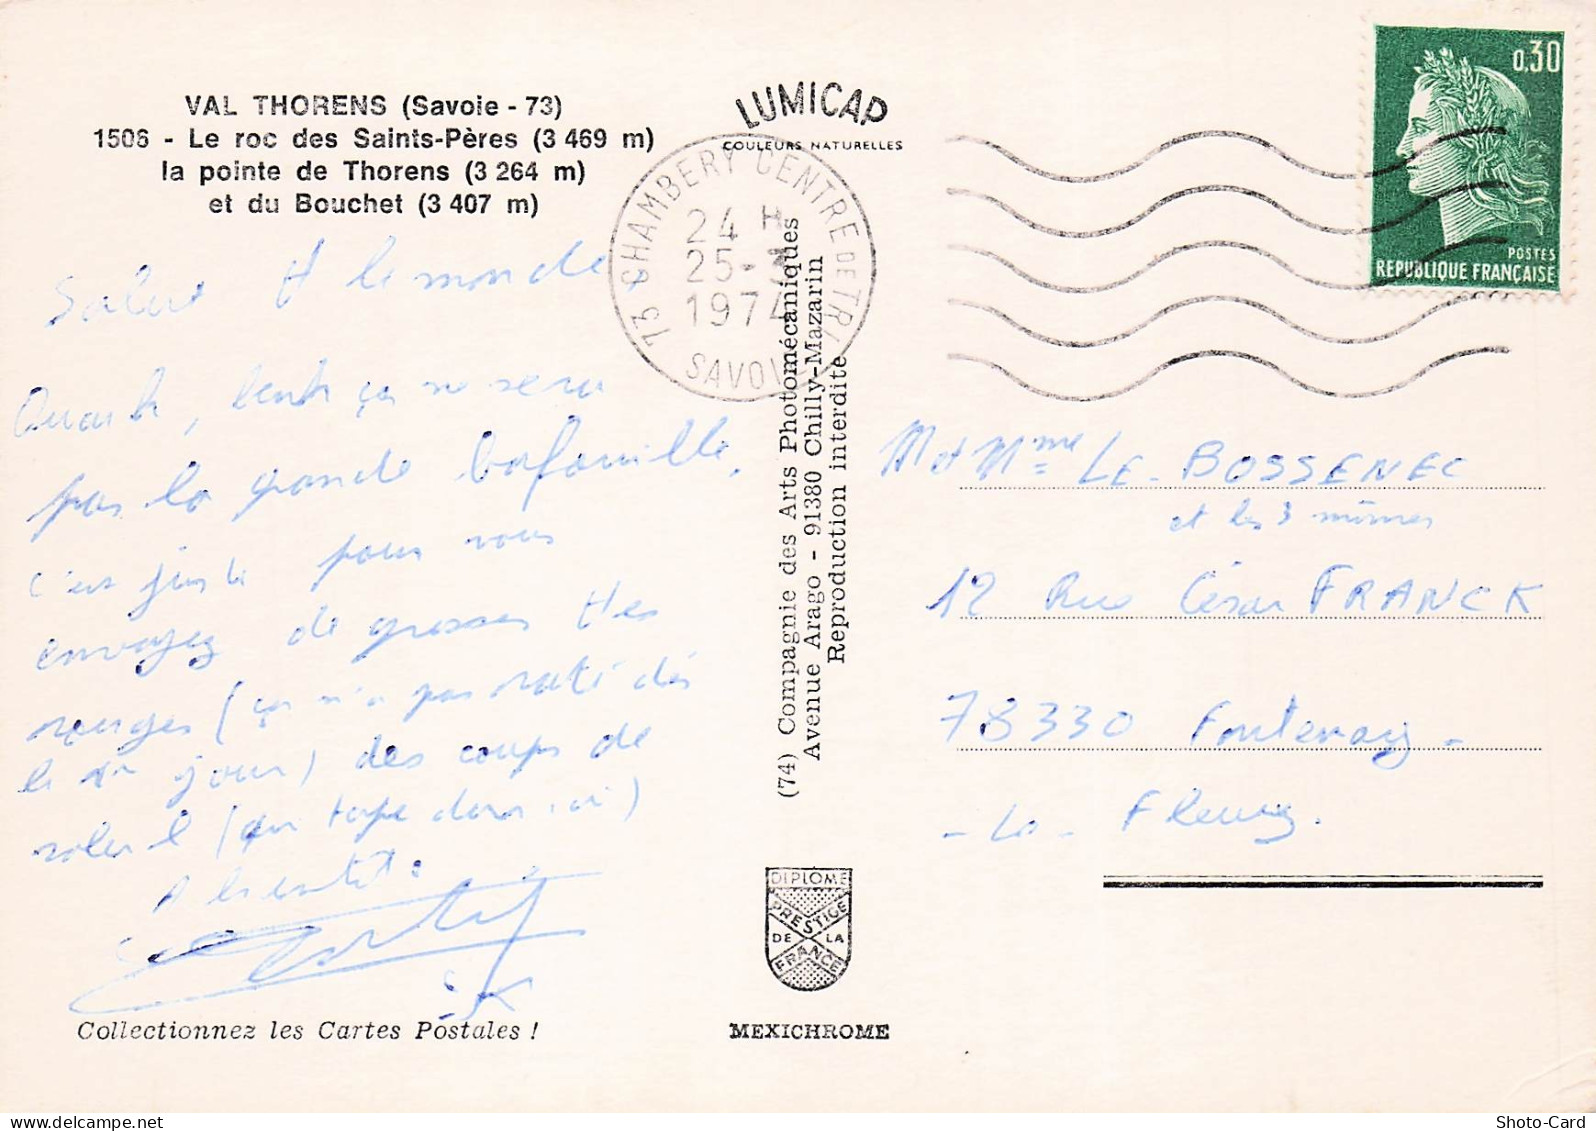 VAL THORENS (Savoie - 73)
1506 - Le roc des Saints-Pères (3 469 m)
la pointe de Thorens (3 264 m)
et du Bouchet (3 407 m)
Salut tt le monde
ça ne sera
pas la grande bafouille,
c'est juste pour vous
envoyez de grosses ttes
rouges (ça n'a pas raté dès
le 1er jour) des coups de
soleil (ça tape dur ici)
A bientôt.
Collectionnez les Cartes Postales !
LUMICAP
COULEURS NATURELLES
73 CHAMBERY CENTRE DE TRI
24 H
25-3
1974
SAVOIE
(74) Compagnie des Arts Photomécaniques
Avenue Arago - 91380 Chilly-Mazarin
Reproduction interdite
DIPLOME
PRESTIGE
DE LA
FRANCE
MEXICHROME
0,30
POSTES
REPUBLIQUE FRANÇAISE
M et Mme LE BOSSENEC
et les 3 mômes
12 Rue César FRANCK
78330 Fontenay-
-le- Fleury.
delcampe.net
Shoto-Card